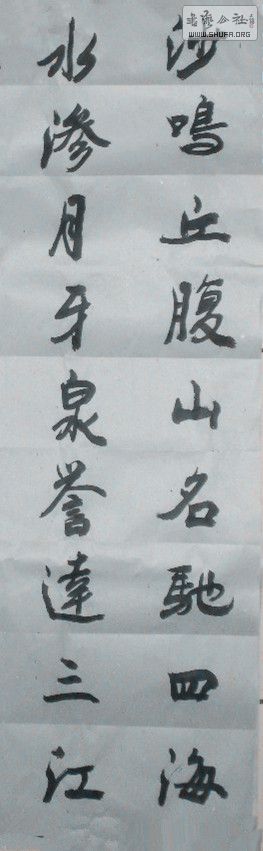 沙鳴丘腹山名馳四海
水滲月牙泉誉達三江
書藝公社
WWW.SHUFA.ORG